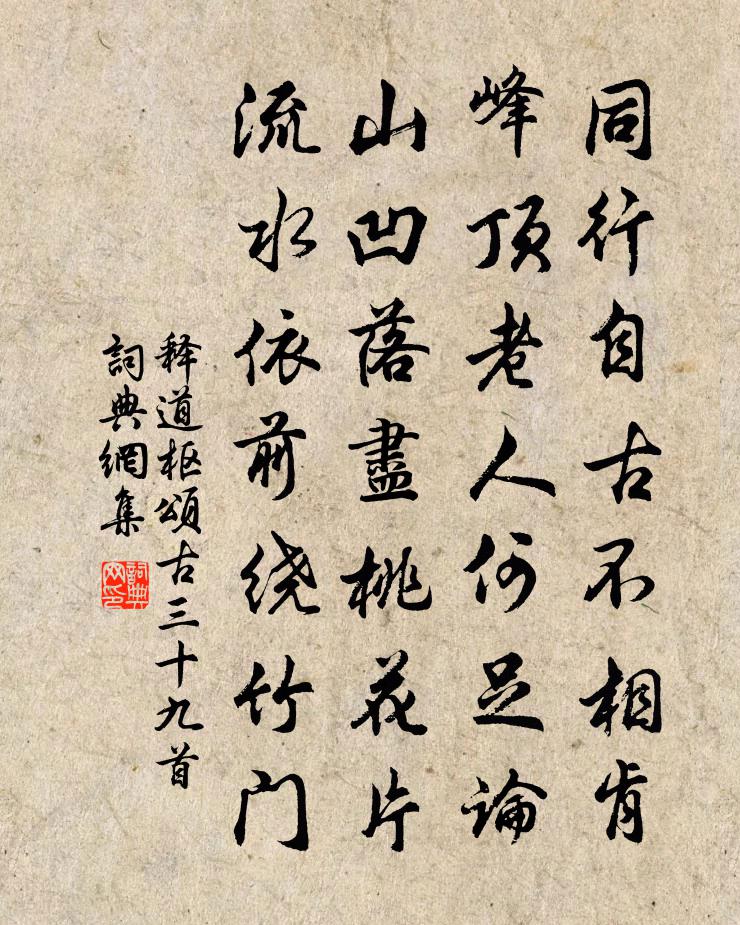 同行自古不相肯
峰顶老人何足論
山凹落盡桃花片
流水依前绕竹门
释道枢頌古三十九首
詞典網集
詞典网印